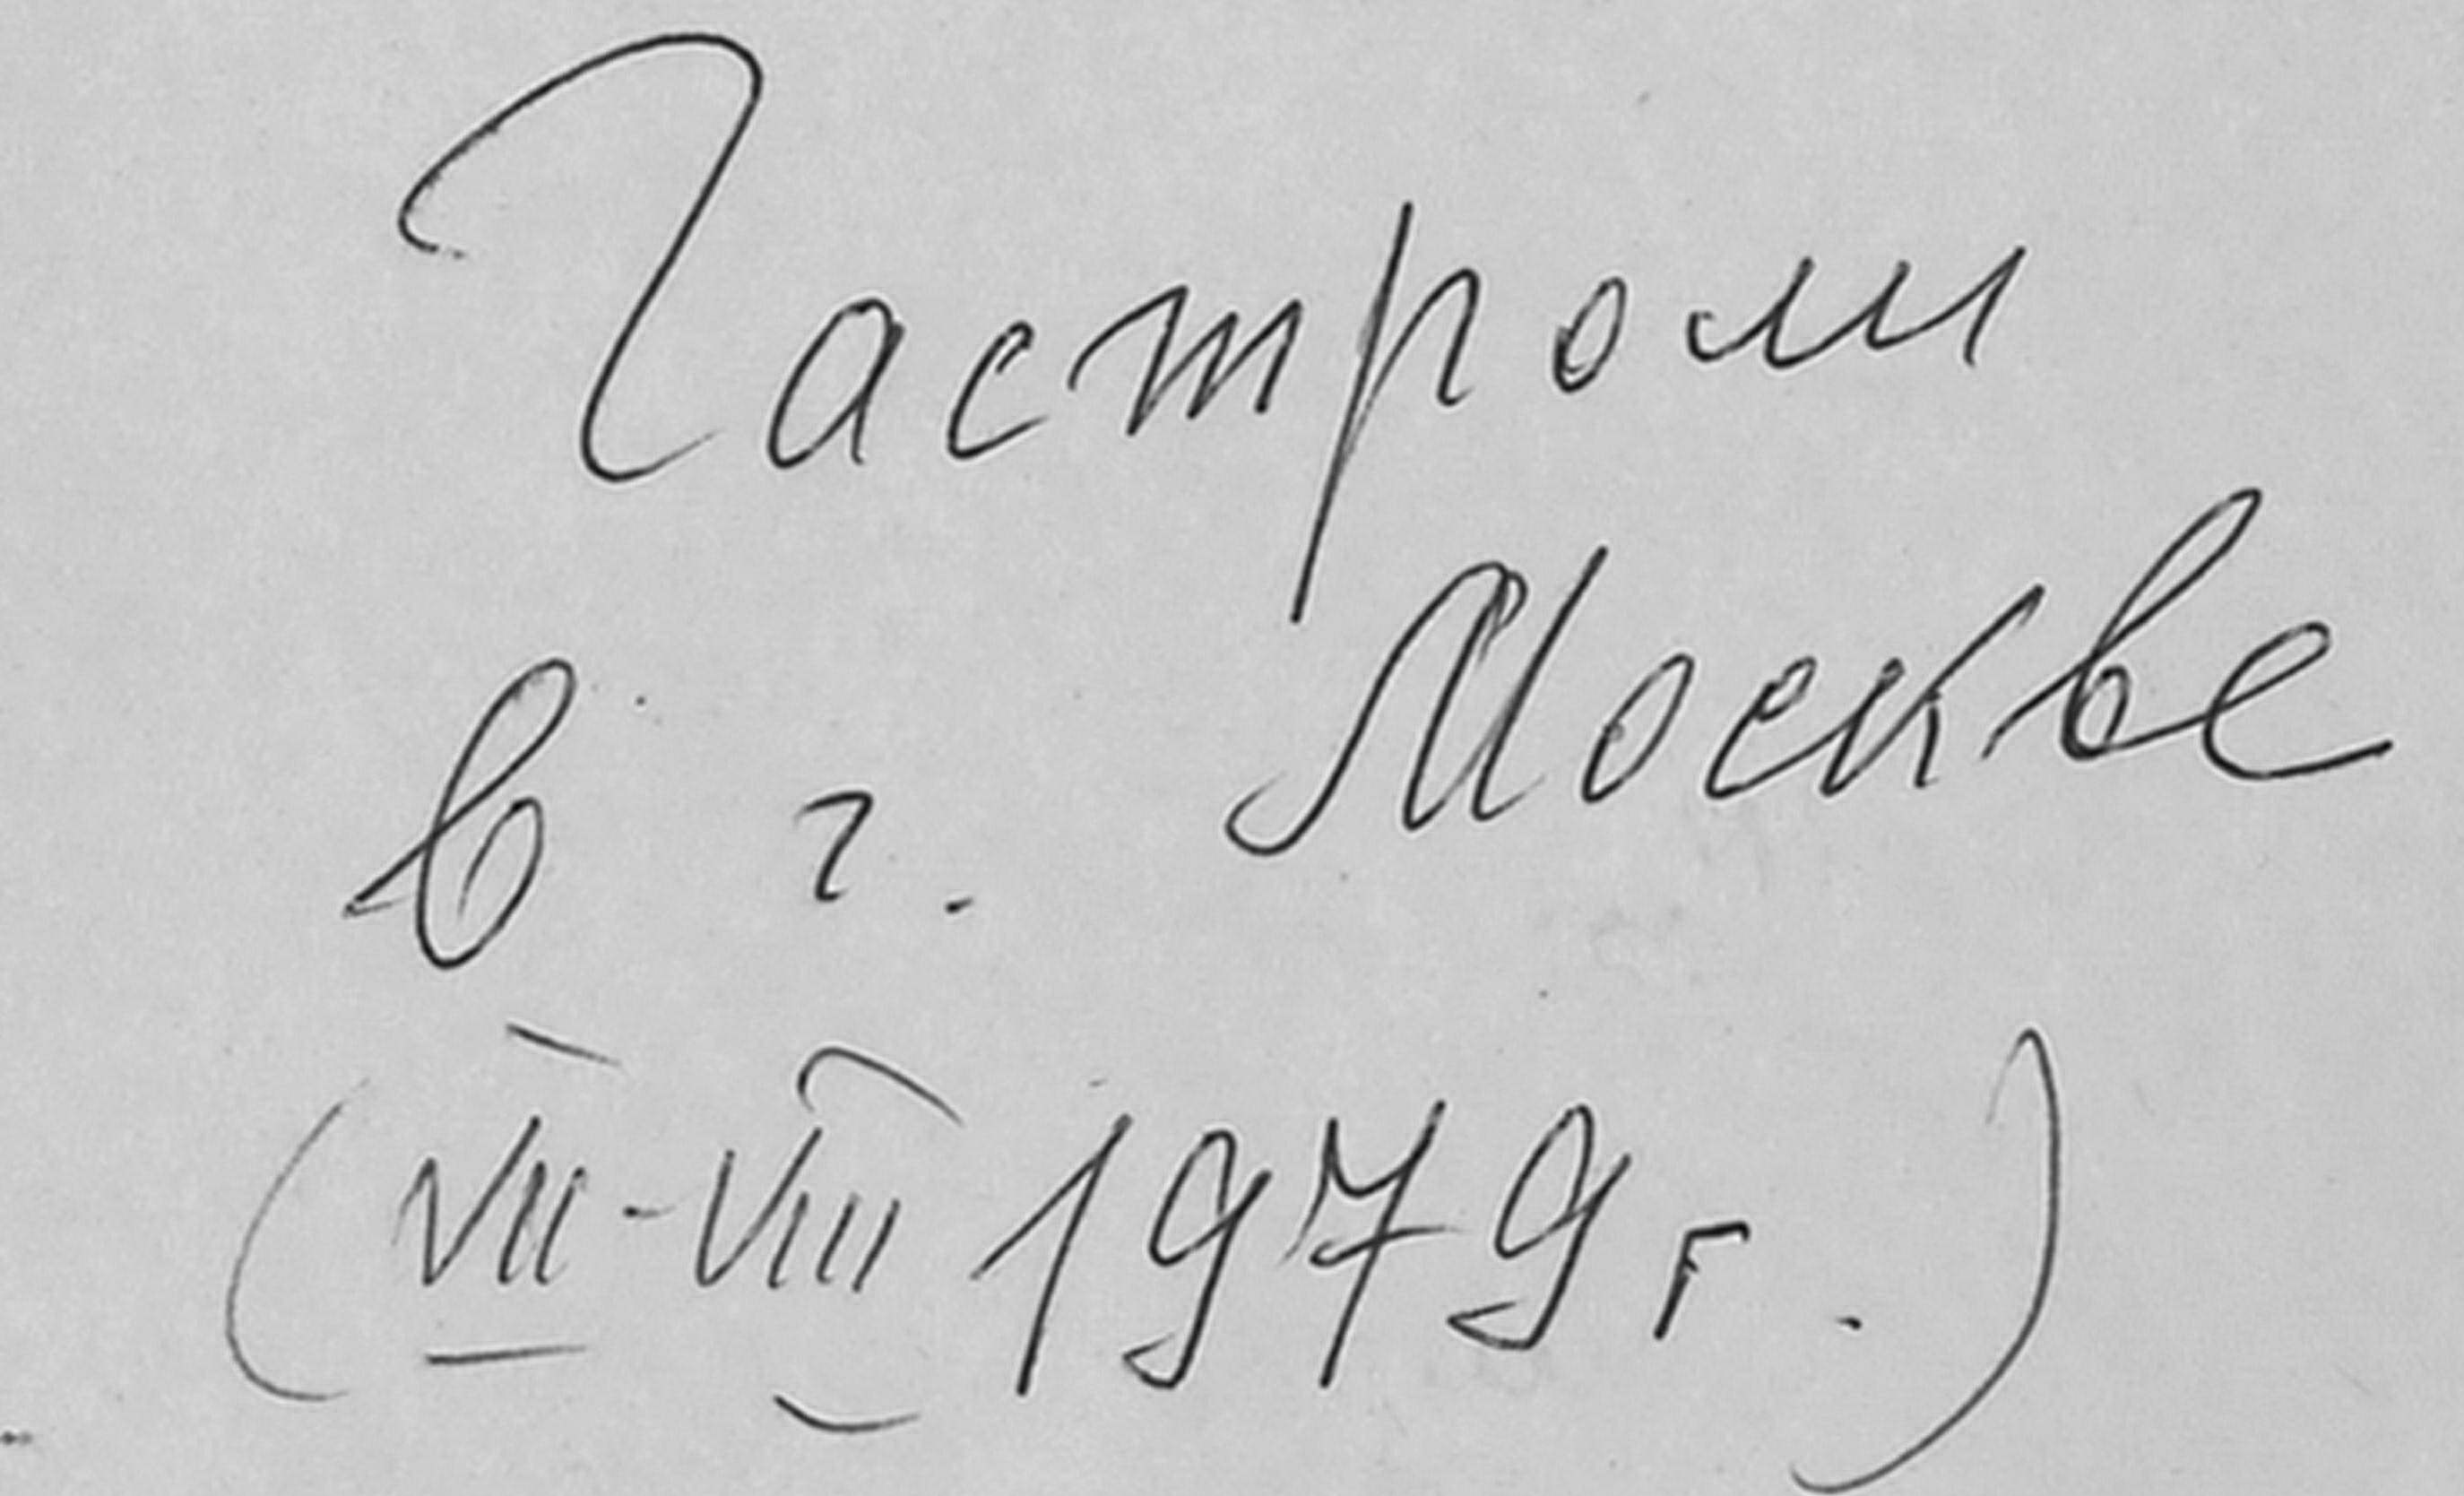 Гастроли
в г. Москве
(VII-VIII 1979 г.)